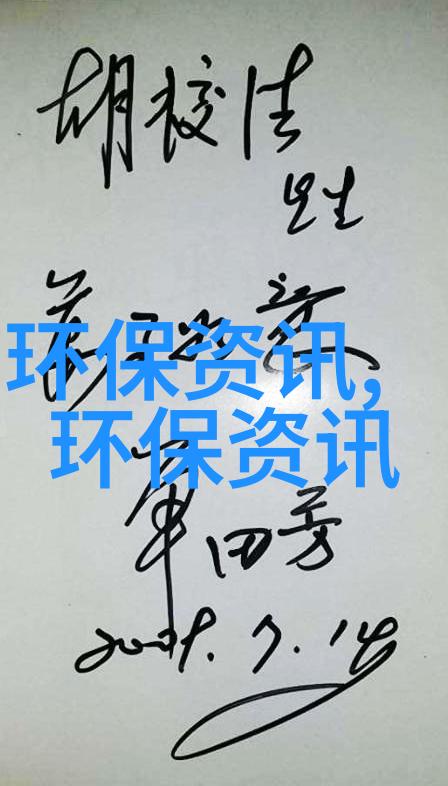 胡校法
先生
环保资讯,
环保资讯
单田芳
2009.7.14